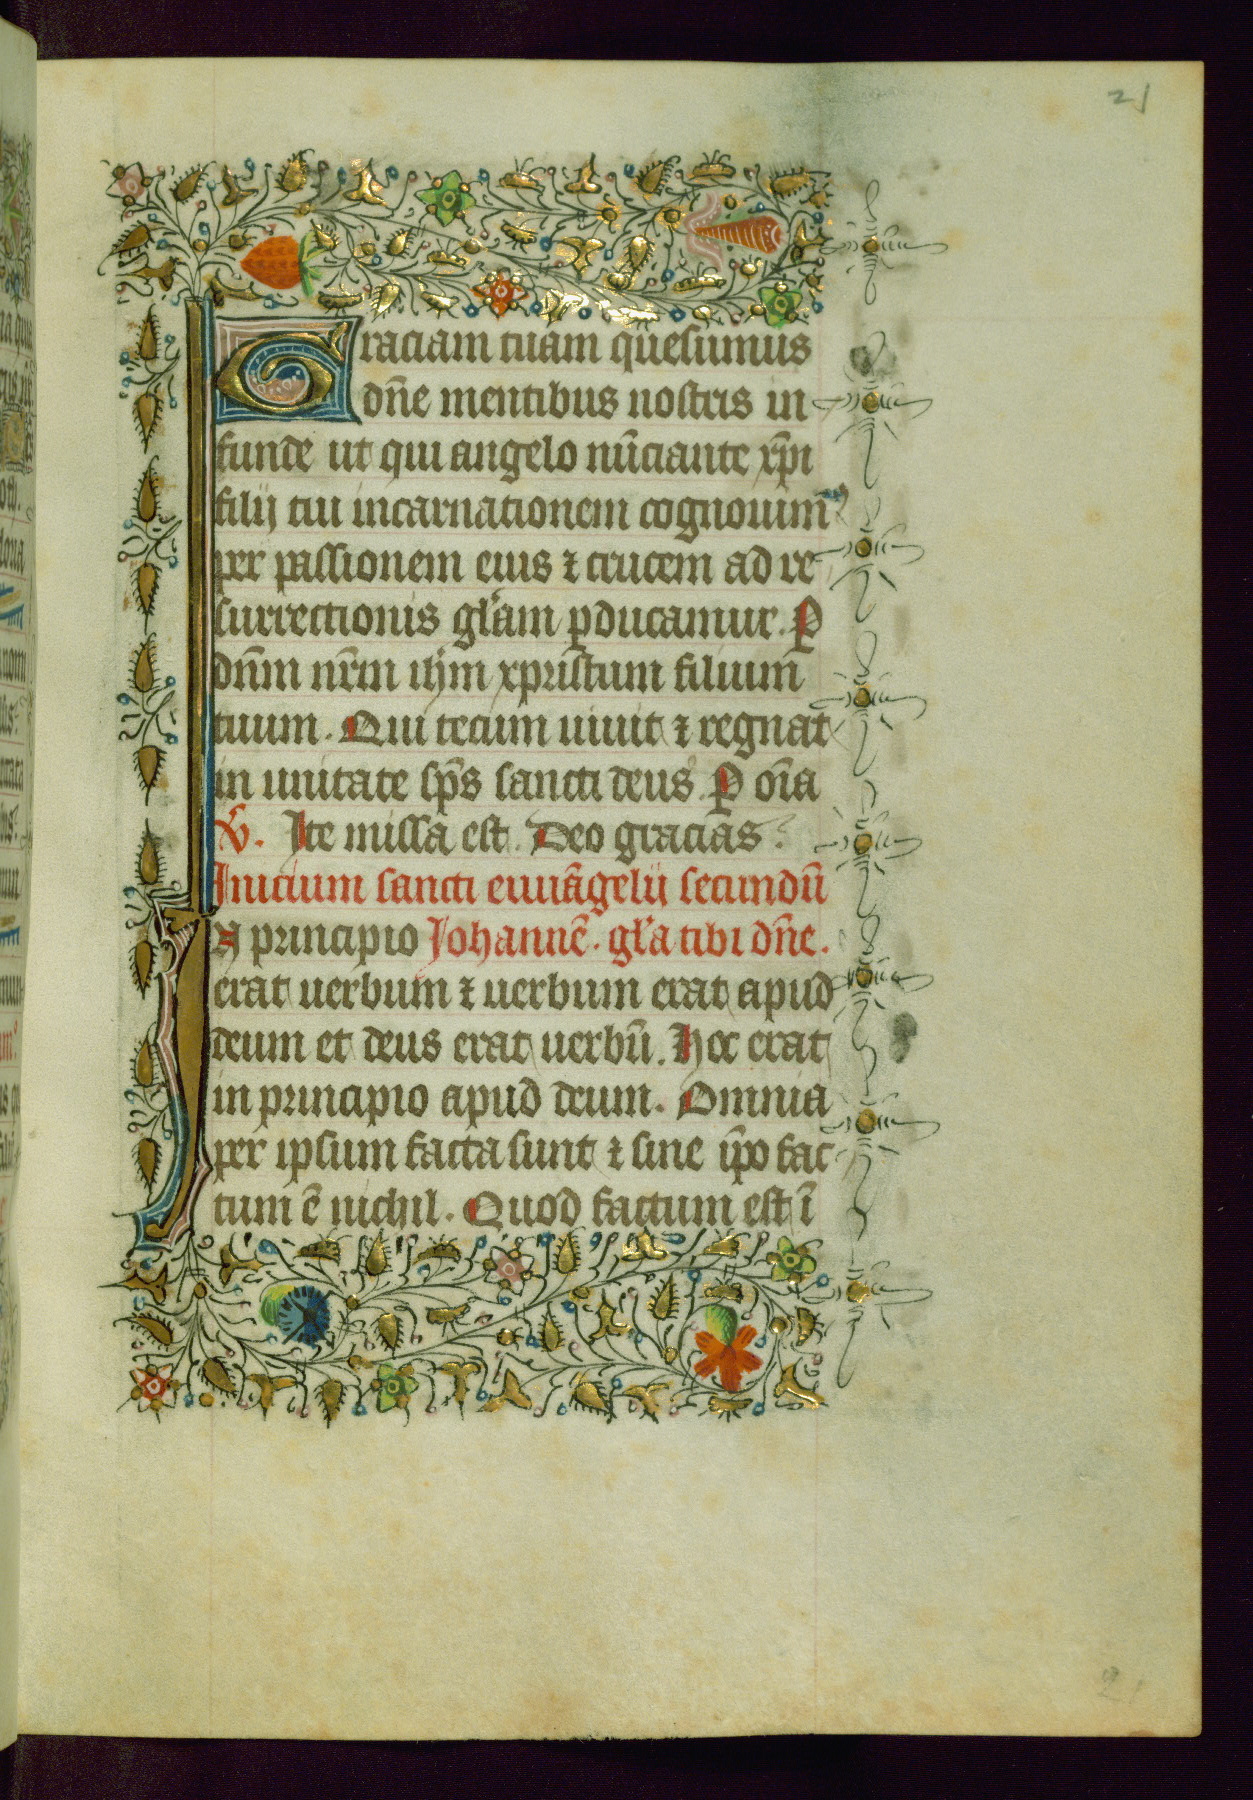 21
Graciam tuam quesumus
dn̄e mentibus nostris in
funde ut qui angelo nūciante xp̄i
filij tui incarnationem cognouimꝰ
per passionem eius ⁊ crucem ad re
surrectionis gl̄am ꝓducamur. P
dn̄m nr̄m ihm̄ xpristum filium
tuum. Qui tecum uiuit ⁊ regnat
in unitate sp̄s sancti deus. P oīa
V̄. Ite missa est. Deo gracias
Inicium sancti euuāgelij secundū
In principio Johannē. gl̄a tibi dn̄e.
erat uerbum ⁊ uerbum erat apud
deum et deus erat uerbū. Hoc erat
in principio apud deum. Omnia
per ipsum facta sunt ⁊ sine ip̄o fac
tum ē nichil. Quod factum est ī
21